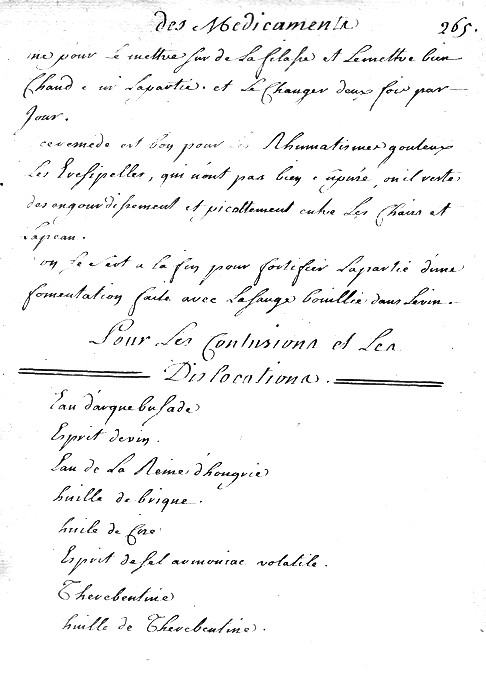 des Medicaments 265.
me pour le mettre sur de la filasse et le mettre bien
Chaud sur lapartie. et le Changer deux fois par
Jour.
ceremede est bon pour les Rhumatismes gouteux
les Eresipelles, qui n'ont pas bien supuré, ou il reste
des engourdissement et picottement entre les Chairs et
lapeau.
on se sert a la fin pour fortifier lapartie d'une
fomentation faite avec lasauge bouillie dans levin.
Pour les Contusions et Les
Dislocations.
Eau d'arquebusade
Esprit devin.
Eau de La Reine d'hongrie
huille de brique.
huile de Cire
Esprit de sel armoniac volatile.
Therebentine
huille de Therebentine.